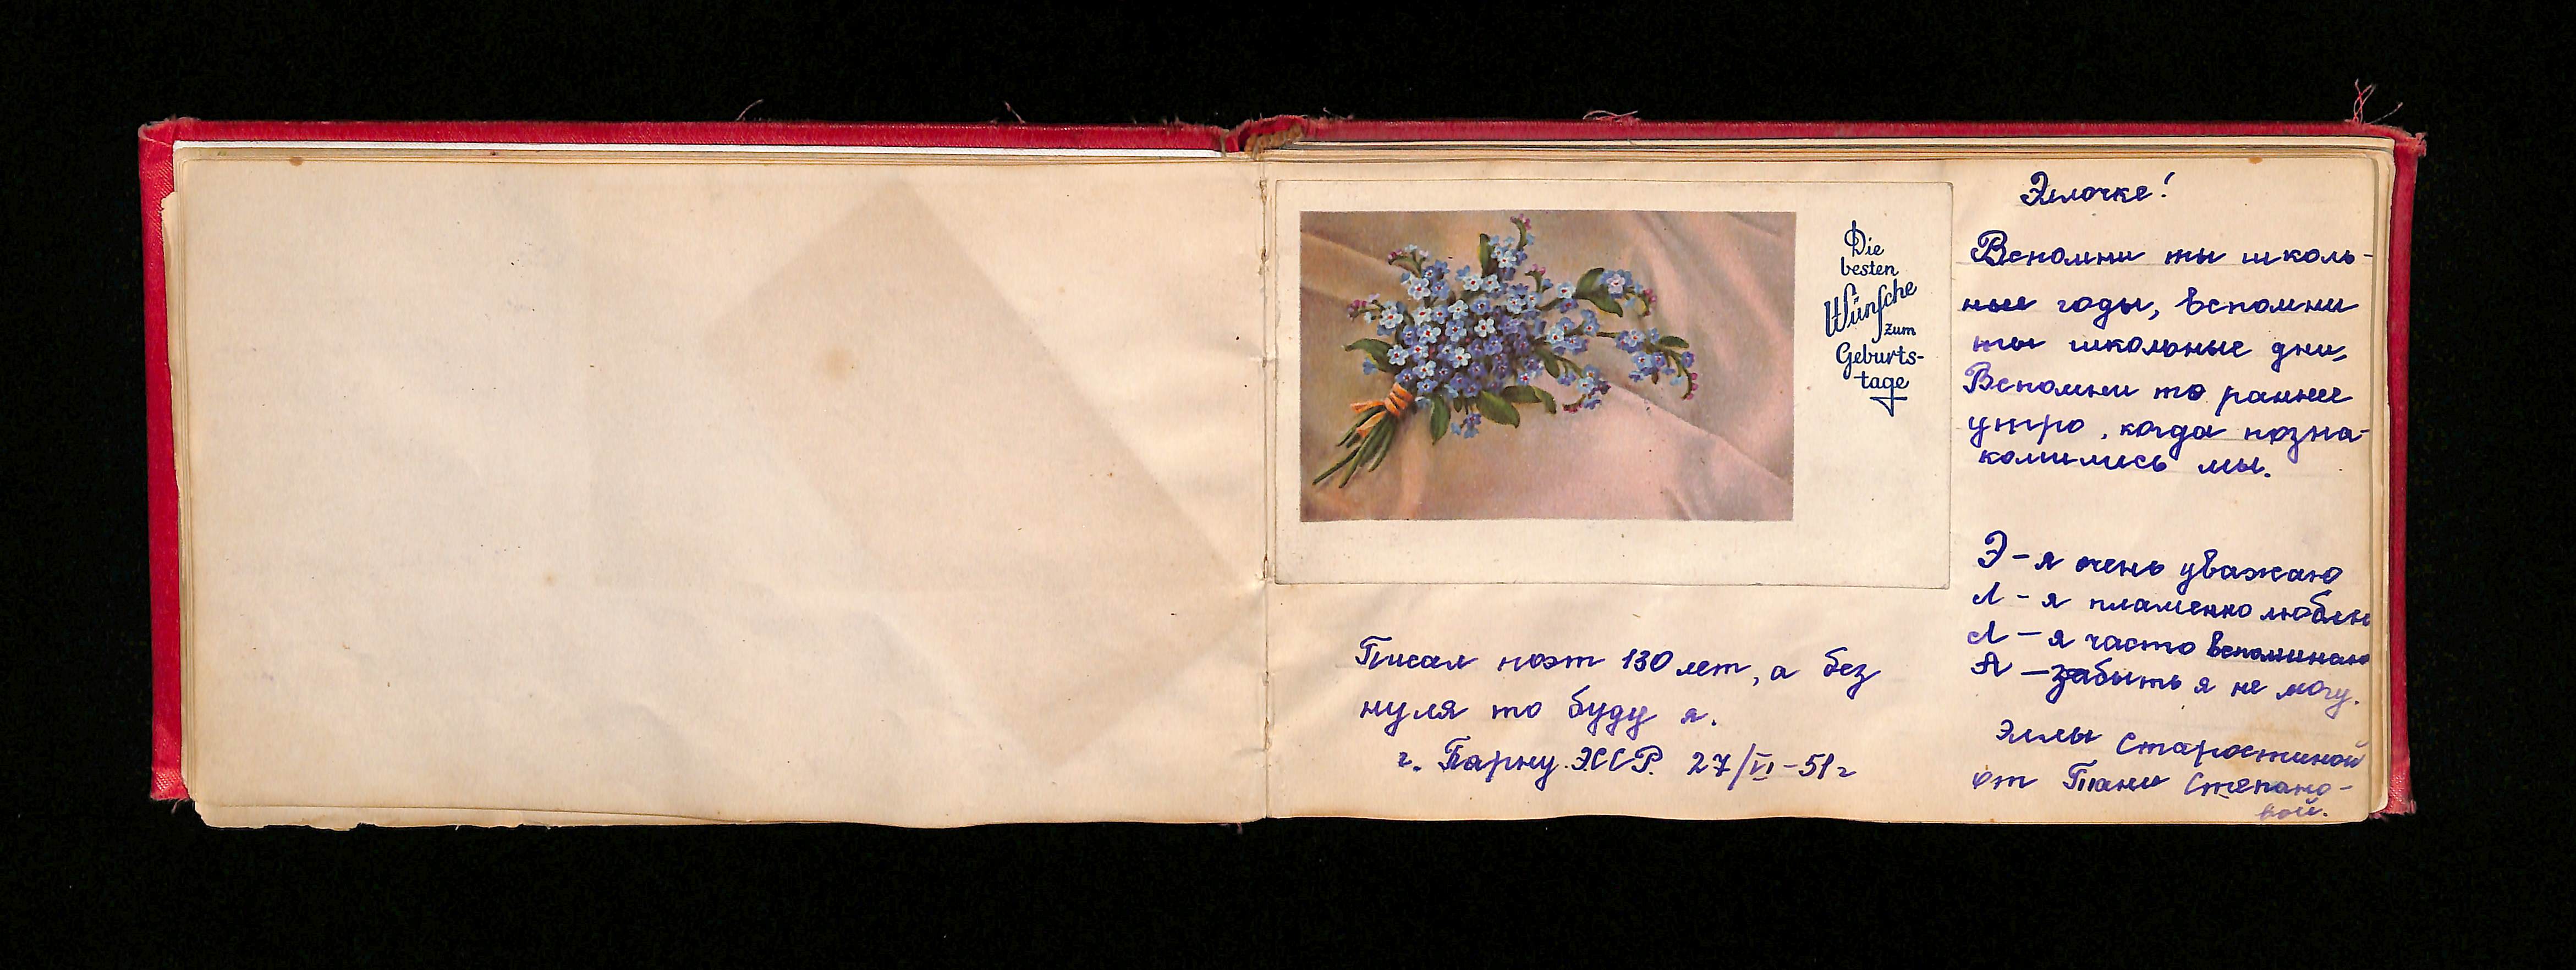 Die
besten
Wünsche
zum
Geburts-
tage
Эллочке!
Вспомни ты школь-
ные годы, вспомни
ты школьные дни,
Вспомни то раннее
утро, когда позна-
комились мы.
Э - я очень уважаю
Л - я пламенно люблю
Л - я часто вспоминаю
А - забыть я не могу.
Эллы Старостиной
от Тани Степано-
вой.
Писал поэт 130 лет, а без
нуля то буду я.
г. Пярну ЭССР. 27/VI-51г